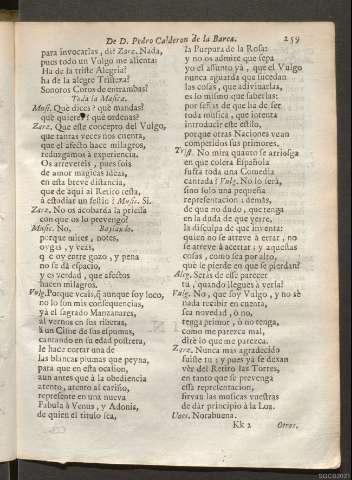 De D. Pedro Calderon de la Barca. 259
para invocarlas, di? Zarz. Nada,
pues todo un Vulgo me alienta:
Ha de la triste Alegria?
ha de la alegre Tristeza?
Sonoros Coros de entrambas?
Toda la Musica.
Musi. Què dices? què mandas?
què quieres? què ordenas?
Zarz. Que este concepto del Vulgo,
que tantas veces nos cuenta,
que el afecto hace milagros,
reduzgamos à experiencia.
Os atrevereis, pues sois
de amor magicas idèas,
en esta breve distancia,
que de aqui al Retiro resta,
à estudiar un festin? Music. Si.
Zarz. No os acobarda la priessa
con que os lo prevengo?
Music. No, Baylando.
porque mires, notes,
oygas, y veas,
que oy entre gozo, y pena
no se dà espacio,
y es verdad, que afectos
hacen milagros.
Vulg. Porque veais, q̃ aunque soy loco,
no lo son mis consequencias,
yà el sagrado Manzanares,
al vernos en sus riberas,
à un Cisne de sus espumas,
cantando en su edad postrera,
le hace cortar una de
las blancas plumas que peyna,
para que en esta ocasion,
aun antes que à la obediencia
atento, atento al cariño,
represente en una nueva
Fabula à Venus, y Adonis,
de quien el titulo sea,
la Purpura de la Rosa:
y no os admire que sepa
yo el assunto yà, que el Vulgo
nunca aguarda que sucedan
las cosas, que adivinarlas,
es lo mismo que saberlas:
por señas de que ha de ser
toda musica, que intenta
introducir este estilo,
porque otras Naciones vean
competidos sus primores.
Trist. No mira quanto se arriesga
en que colera Española
sufra toda una Comedia
cantada? Vulg. No lo serà,
sino solo una pequeña
representacion: demàs,
de que no dudo, que tenga
en la duda de que yerre,
la disculpa de que inventa:
quien no se atreve à errar, no
se atreve à acertar; y aquestas
cosas, como sea por alto,
què se pierde en que se pierdan?
Aleg. Seràs de esse parecer
tu, quando llegues à verla?
Vulg. No, que soy Vulgo, y no sè
nada recibir en cuenta,
sea novedad, ò no,
tenga primor, ò no tenga,
como me parezca mal,
dirè lo que me parezca.
Zarz. Nunca mas agradecido
fuiste tu; y pues yà se dexan
vèr del Retiro las Torres,
en tanto que se prevenga
essa representacion,
sirvan las musicas vuestras
de dar principio à la Loa.
Unos. Norabuena.
Kk 2 Otros.